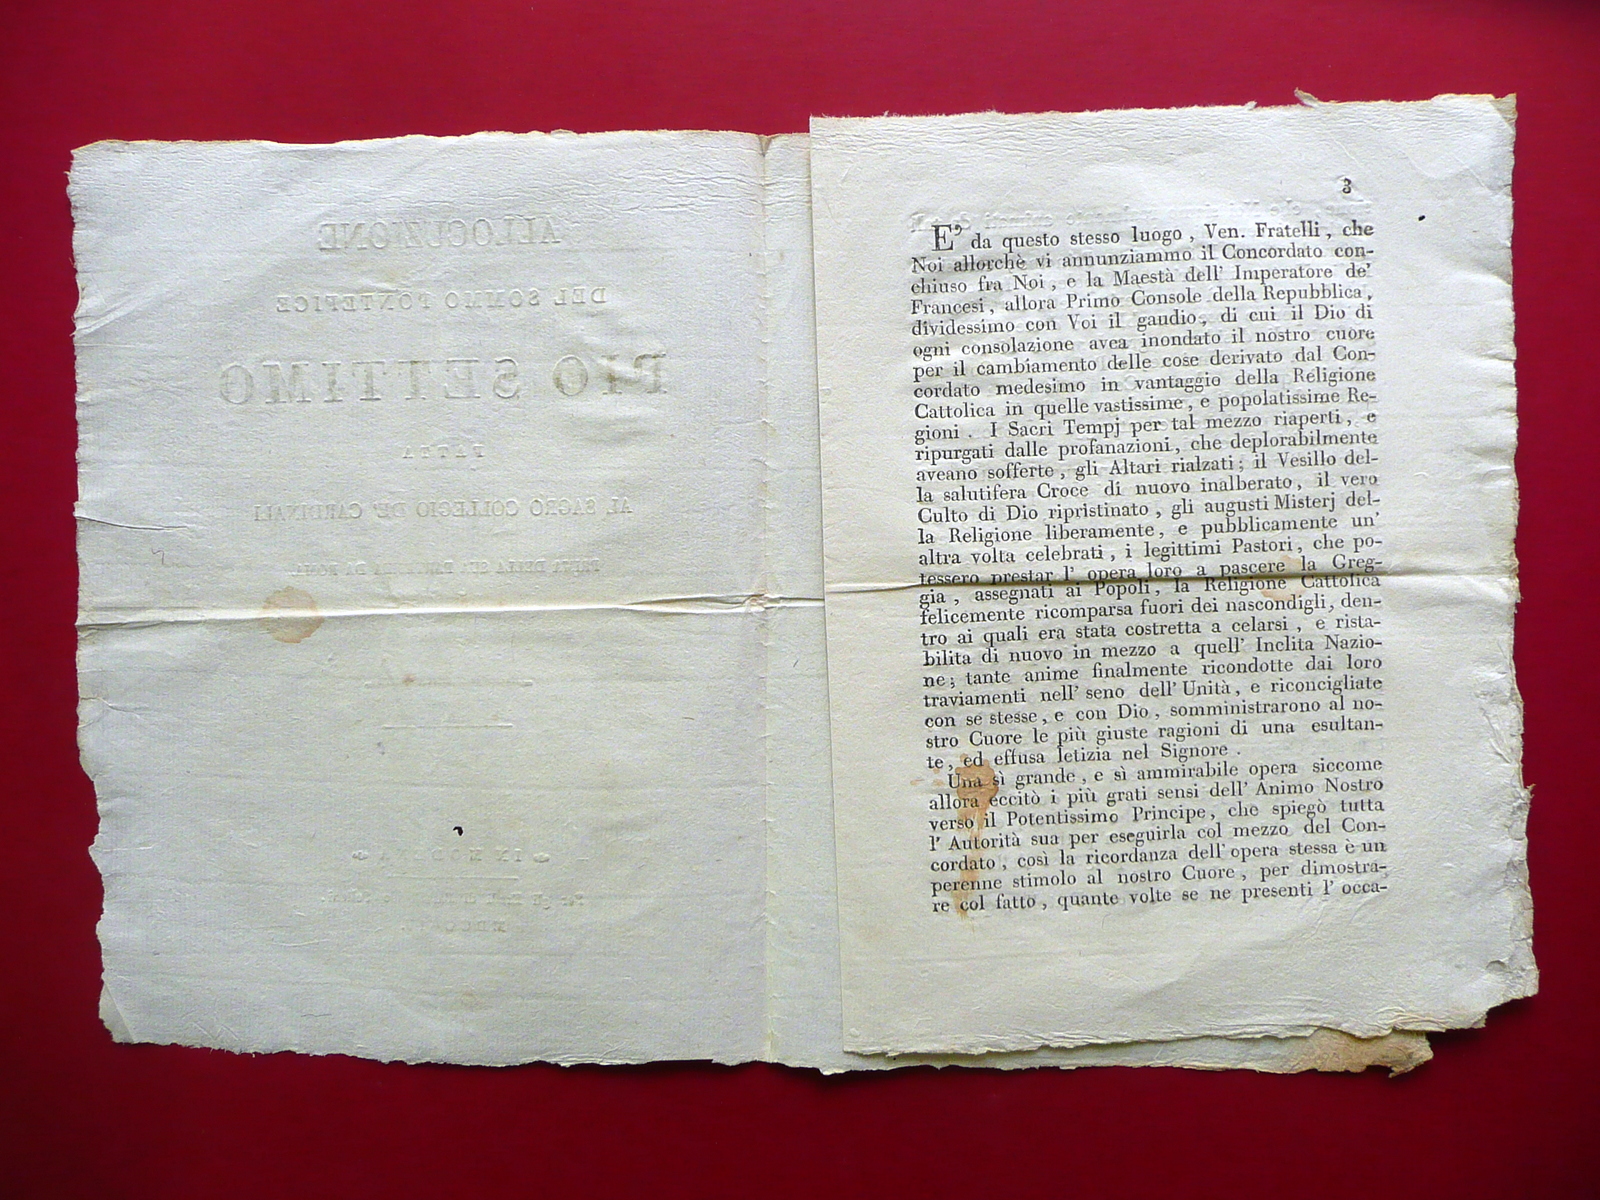 ALLOCUZIONE
DEL SOMMO PONTEFICE
PIO SETTIMO
FATTA
AL SACRO COLLEGIO DE' CARDINALI
PRIMA DELLA SUA PARTENZA DA ROMA
3
E' da questo stesso luogo , Ven. Fratelli , che
Noi allorchè vi annunziammo il Concordato con-
chiuso fra Noi , e la Maestà dell' Imperatore de'
Francesi , allora Primo Console della Repubblica ,
dividessimo con Voi il gaudio , di cui il Dio di
ogni consolazione avea inondato il nostro cuore
per il cambiamento delle cose derivato dal Con-
cordato medesimo in vantaggio della Religione
Cattolica in quelle vastissime , e popolatissime Re-
gioni . I Sacri Tempj per tal mezzo riaperti , e
ripurgati dalle profanazioni , che deplorabilmente
aveano sofferte , gli Altari rialzati ; il Vesillo del-
la salutifera Croce di nuovo inalberato , il vero
Culto di Dio ripristinato , gli augusti Misterj del-
la Religione liberamente , e pubblicamente un'
altra volta celebrati , i legittimi Pastori , che po-
tessero prestar l' opera loro a pascere la Greg-
gia , assegnati ai Popoli , la Religione Cattolica
felicemente ricomparsa fuori dei nascondigli , den-
tro ai quali era stata costretta a celarsi , e rista-
bilita di nuovo in mezzo a quell' Inclita Nazio-
ne ; tante anime finalmente ricondotte dai loro
traviamenti nell' seno dell' Unità , e riconcigliate
con se stesse , e con Dio , somministrarono al no-
stro Cuore le più giuste ragioni di una esultan-
te , ed effusa letizia nel Signore .
Una sì grande , e sì ammirabile opera siccome
allora eccitò i più grati sensi dell' Animo Nostro
verso il Potentissimo Principe , che spiegò tutta
l' Autorità sua per eseguirla col mezzo del Con-
cordato , così la ricordanza dell' opera stessa è un
perenne stimolo al nostro Cuore , per dimostra-
re col fatto , quante volte se ne presenti l' occa-